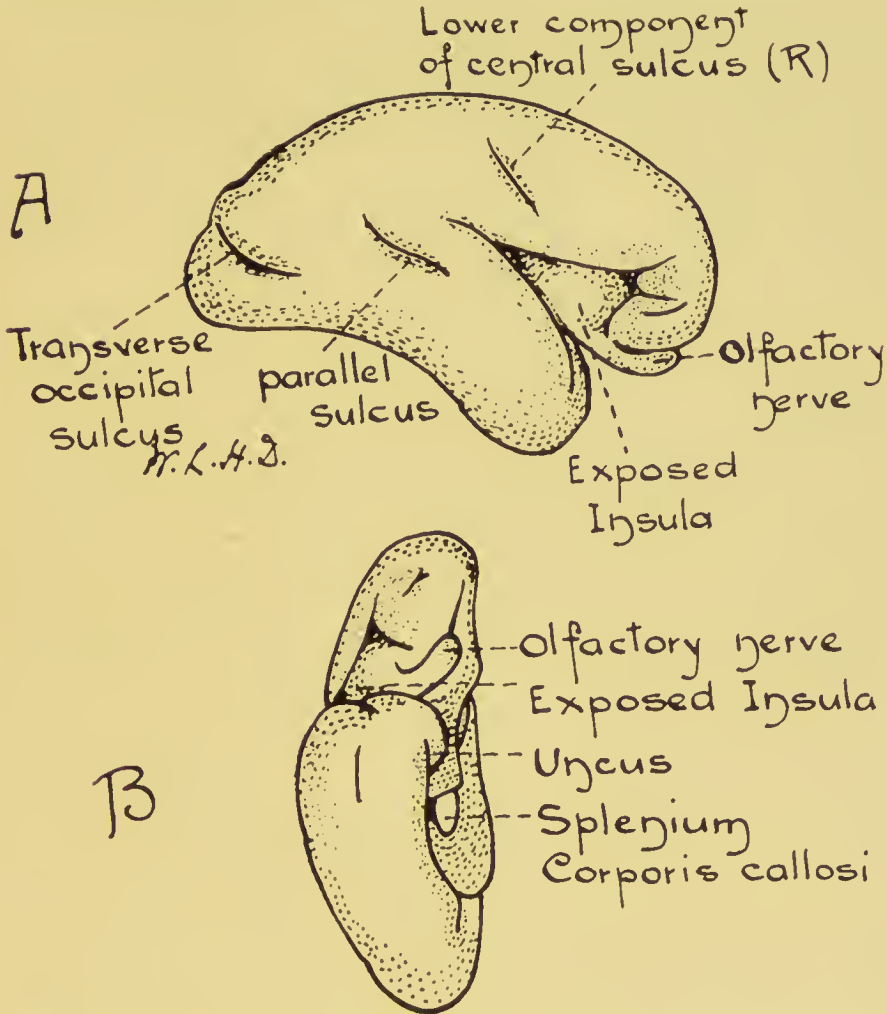 Lower component
of central sulcus (R)
A
Transverse
occipital
sulcus
parallel
sulcus
W.L.H.D.
Olfactory
nerve
Exposed
Insula
B
Olfactory nerve
Exposed Insula
Uncus
Splenium
Corporis callosi